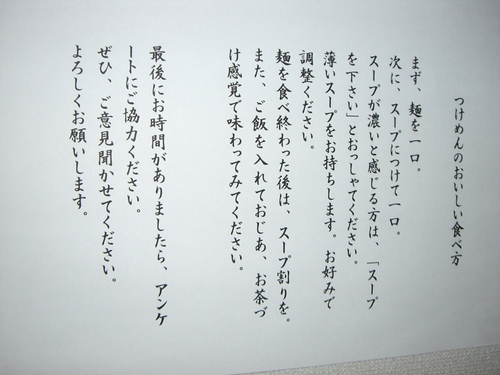 つけめんのおいしい食べ方
まず、麺を一口。
次に、スープにつけて一口。
スープが濃いと感じる方は、「スープ
を下さい」とおっしゃてください。
薄いスープをお持ちします。お好みで
調整ください。
麺を食べ終わった後は、スープ割りを。
また、ご飯を入れておじあ、お茶づ
け感覚で味わってみてください。
最後にお時間がありましたら、アンケ
ートにご協力ください。
ぜひ、ご意見聞かせてください。
よろしくお願いします。